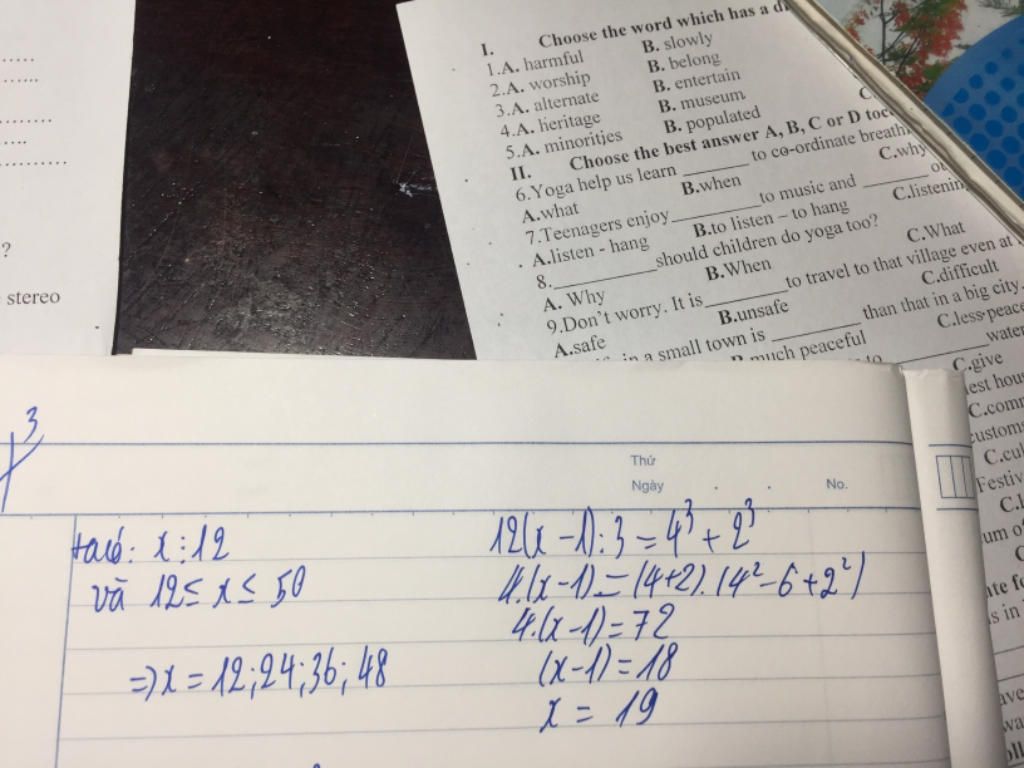 ?
stereo
I. Choose the word which has a
1.A. harmful B. slowly
2.A. worship B. belong
3.A. alternate B. entertain
4.A. heritage B. museum
5.A. minorities B. populated C
II. Choose the best answer A, B, C or D to
6.Yoga help us learn ________ to co-ordinate
A.what B.when C.why
7.Teenagers enjoy__________to music and _______
A.listen - hang B.to listen ~ to hang C.listening
8.____________should children do yoga too?
A. Why B.When C.What
9.Don't worry. It is_________to travel to that village even at
A.safe B.unsafe C.difficult
in a small town is _________ than that in a big city.
B.much peaceful C.less peace
to __________ water
C.give
C.com
customs
C.cul
Festiv
um of
s in
3
Thứ
Ngày . . No.
ta có: x ⋮ 12
và 12 ≤ x ≤ 50
=> x = 12; 24; 36; 48
12(x - 1) : 3 = 4³ + 2³
4.(x - 1) = (4+2). (4² - 6 + 2²)
4.(x - 1) = 72
(x - 1) = 18
x = 19